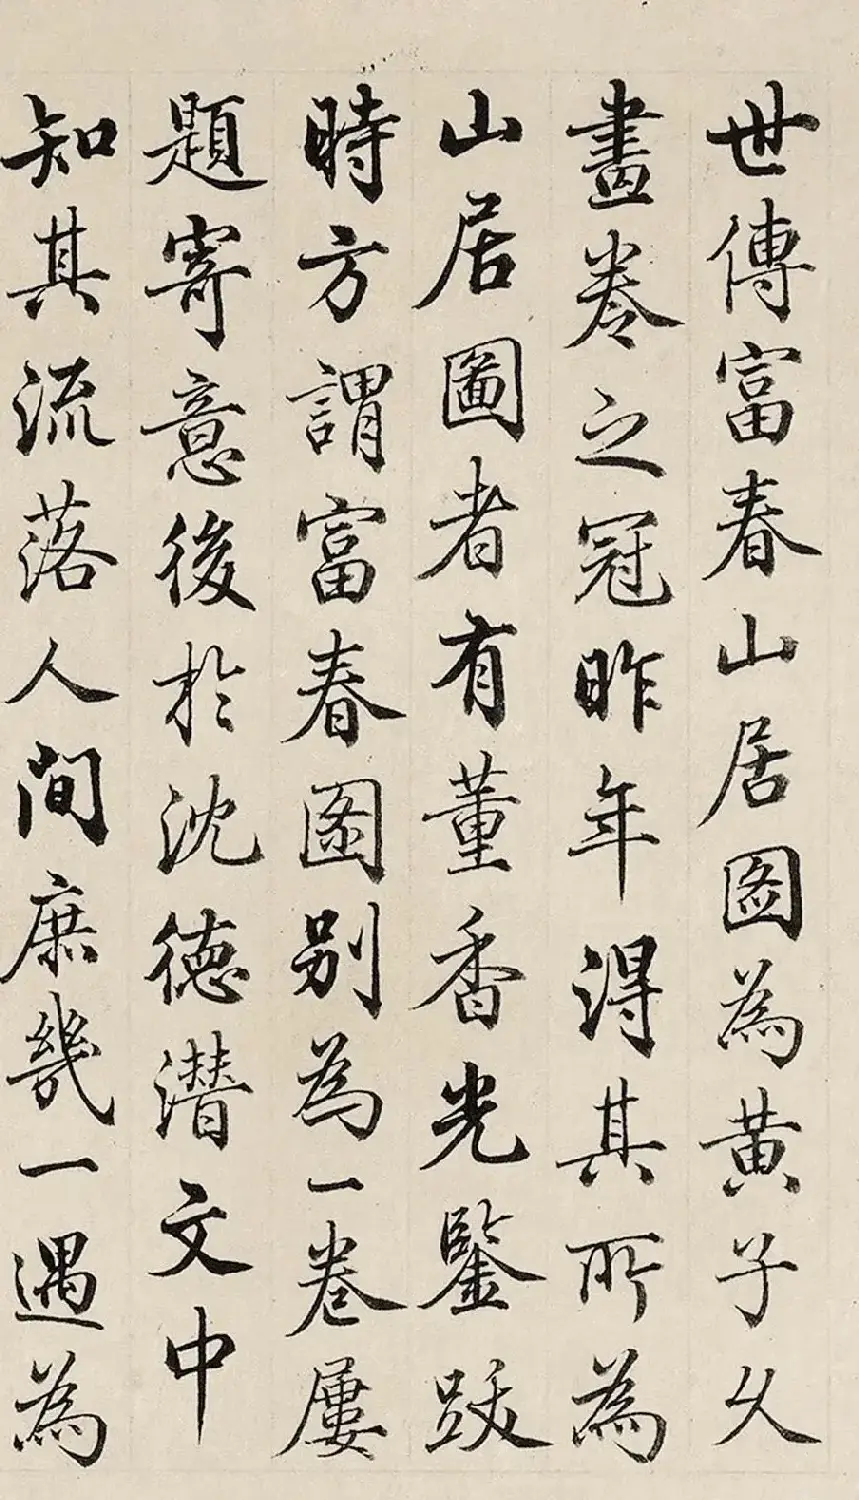 世傳富春山居圖為黃子久
畫卷之冠昨年得其所為
山居圖者有董香光鑒跋
時方謂富春圖別為一卷屢
題寄意後於沈德潛文中
知其流落人間庶幾一遇為